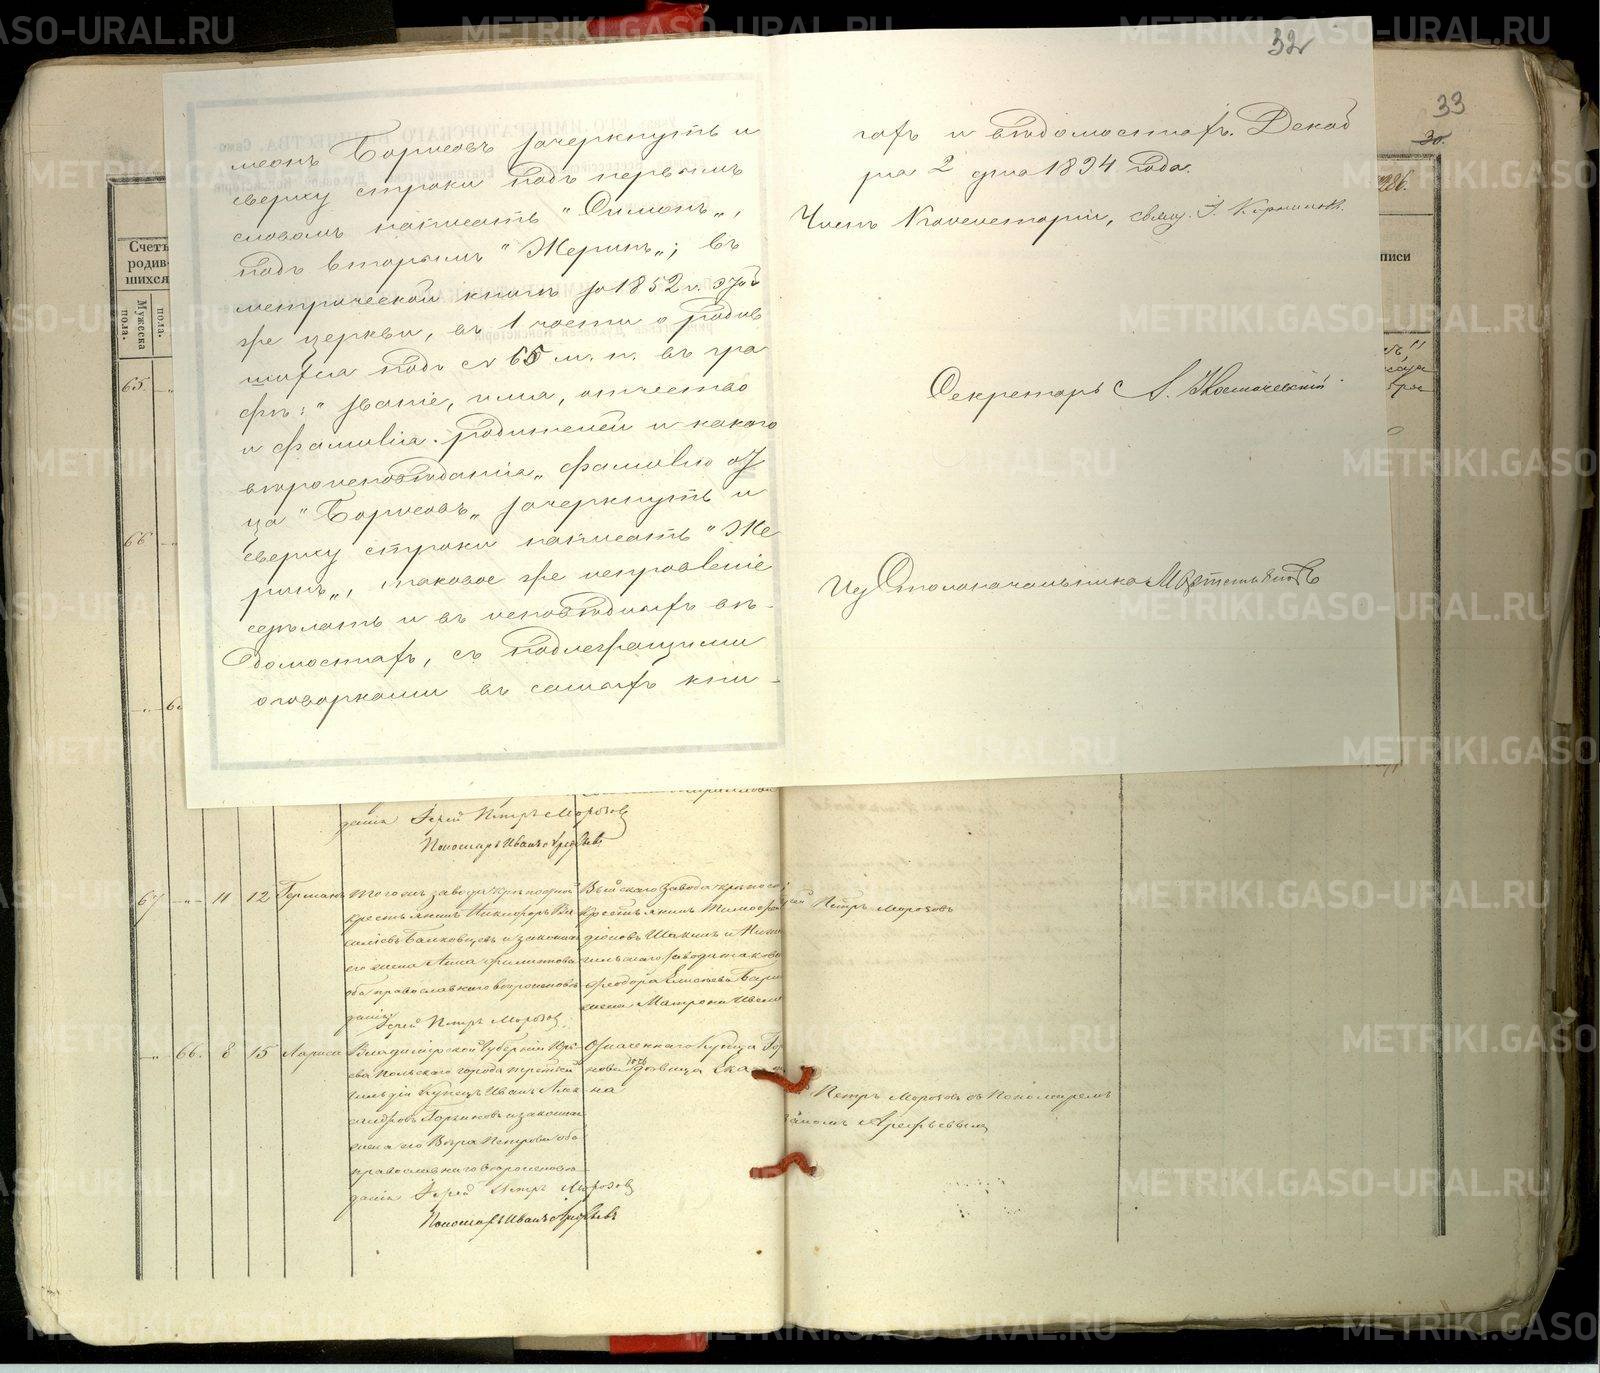 32
33
30.
меонъ Борисовъ зачеркнуть и
сверху строки надъ первымъ
словомъ написать "Симонъ",
надъ вторымъ "Жеринъ"; въ
метрической книгѣ за 1852 г. этой
же церкви, въ 1 части о родив
шихся подъ № 65 м. п. въ гра
фѣ: "званіе, имя, отчество
и фамилія родителей и какого
вѣроисповѣданія" фамилію от
ца "Борисовъ" зачеркнуть и
сверху строки написать "Же
ринъ", таковое же исправленіе
сдѣлать и въ исповѣдныхъ вѣ-
домостяхъ, съ надлежащими
оговорками въ самыхъ кни-
гахъ и вѣдомостяхъ. Декаб
ря 2 дня 1894 года.
Членъ Консисторіи, свящ. І.
Секретарь А.
Из Столоначальника
Счетъ
родив-
шихся
Мужеска
пола.
пола.
писи
65
66
данія Іерей Петръ Морозов
Пономарь Иванъ Арефьевъ
67 " 11 12 Германъ
Того жъ завода крѣпостной
крестьянинъ Никифоръ Ва
сильевъ и законная
его жена Анна Филиппова
оба православнаго вѣроисповѣ
данія
Іерей Петръ Морозов
Выйскаго завода крѣпостной
крестьянинъ Тимофей
діоновъ Шакинъ и Нижне
гильскаго завода
Феодора Елисѣева
жена Матрона
Петръ Морозовъ
" 66. 8 15 Лариса
Владимірской Губерніи Юрь
ева Польскаго города третьей
гильдіи Купецъ Иванъ Алек
сандровъ и законная
жена его Вѣра Петрова оба
православнаго вѣроисповѣ
данія Іерей Петръ Морозов
Пономарь Иванъ Арефьевъ
Означеннаго Купца Гор
нова дочь дѣвица Екатери
на
Петръ Морозовъ съ Пономаремъ
Иваномъ Арефьевымъ
METRIKI.GASO-URAL.RU